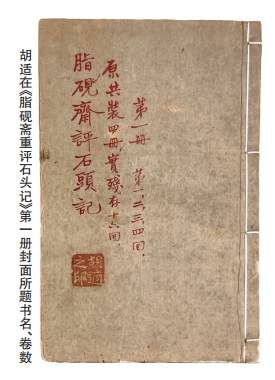 第一冊　第一，二，三，四回，
原共裝四冊，實殘存十六回，
脂硯齋評石頭記
胡適之印
胡适在《脂砚斋重评石头记》第一册封面所题书名、卷数